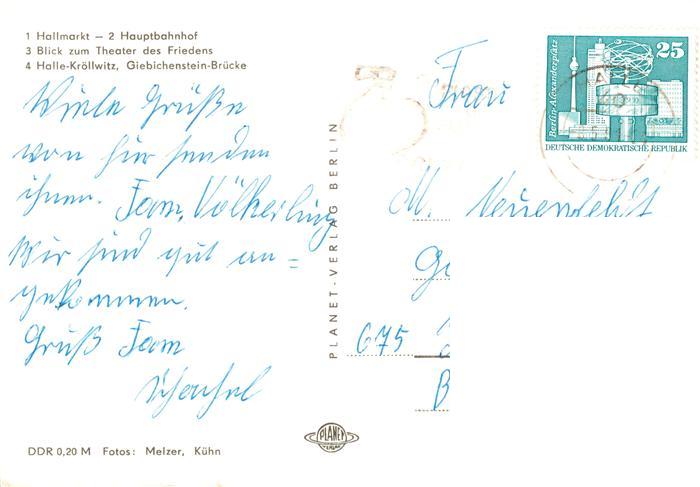 1 Hallmarkt — 2 Hauptbahnhof
3 Blick zum Theater des Friedens
4 Halle-Kröllwitz, Giebichenstein-Brücke
Viele Grüße
von hier senden
ihnen. Fam. Völkerling
Wir sind gut an=
gekommen.
Gruß Fam
DDR 0,20 M Fotos: Melzer, Kühn
PLANET-VERLAG BERLIN
PLANET
VERLAG
Berlin-Alexanderplatz
25
DEUTSCHE DEMOKRATISCHE REPUBLIK
Frau
M.
675